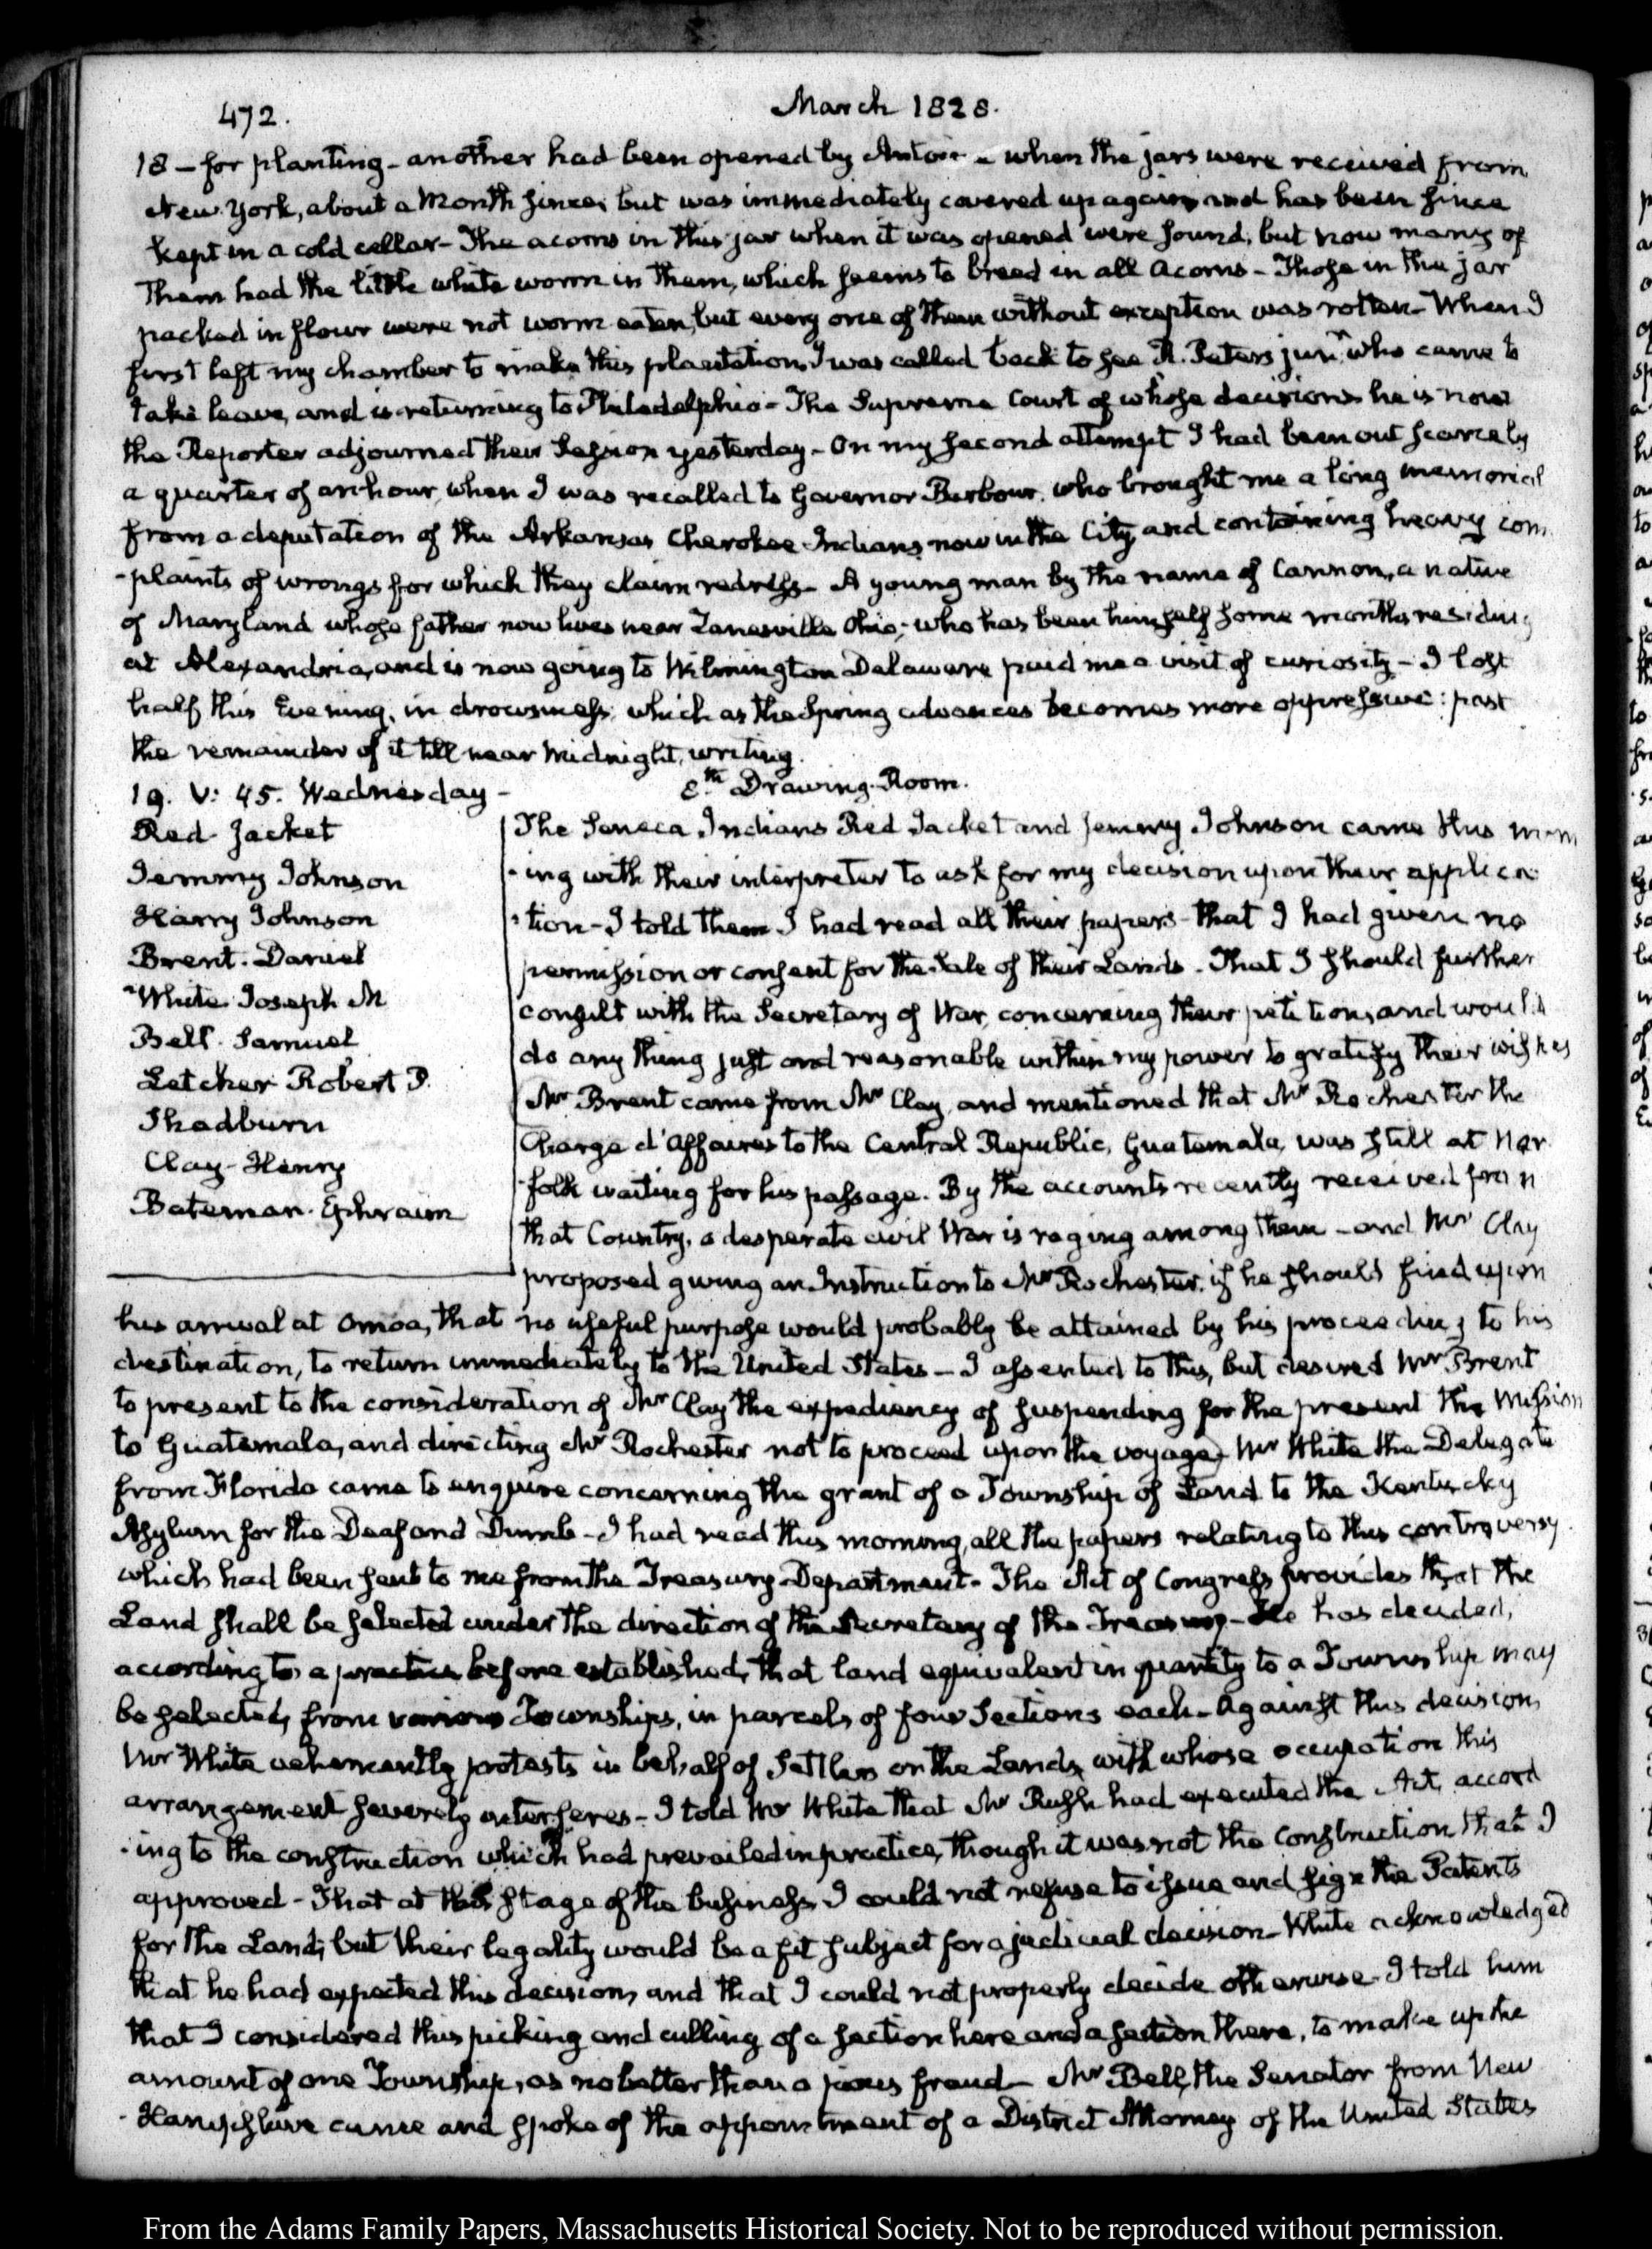 472.
March 1828.
18 – for planting – another had been opened by Antoine – when the jars were received from
New York, about a Month since; but was immediately covered up again and has been since
kept in a cold cellar – The acorns in this jar when it was opened were sound, but now many of
them had the little white worm in them, which seems to breed in all Acorns – Those in the jar
packed in flour were not worm eaten, but every one of them without exception was rotten – When I
first left my chamber to make this plantation, I was called back to see R. Peters junr. who came to
take leave, and is returning to Philadelphia – The Supreme Court of whose decisions he is now
the Reporter adjourned their Session yesterday – On my second attempt I had been out scarcely
a quarter of an hour, when I was recalled to Governor Barbour, who brought me a long memorial
from a deputation of the Arkansas Cherokee Indians now in the City, and containing heavy com
-plaints of wrongs for which they claim redress – A young man by the name of Cannon, a native
of Maryland whose father now lives near Zanesville Ohio; who has been himself some months residing
at Alexandria, and is now going to Wilmington Delaware paid me a visit of curiosity – I lost
half this Evening, in drowsiness, which as the Spring advances becomes more oppressive: past
the remainder of it till near Midnight, writing.
19. V: 45. Wednesday – 8th Drawing Room.
Red Jacket
Jemmy Johnson
Harry Johnson
Brent. Daniel
White Joseph M
Bell. Samuel
Letcher Robert P.
Thadburn
Clay – Henry
Bateman. Ephraim
The Seneca Indians Red Jacket and Jemmy Johnson came this morn
-ing with their interpreter to ask for my decision upon their applica
-tion – I told them I had read all their papers – that I had given no
permission or consent for the sale of their Lands. That I should further
consult with the Secretary of War, concerning their petition, and would
do any thing just and reasonable within my power to gratify their wishes
Mr Brent came from Mr Clay, and mentioned that Mr Rochester the
Charge d'Affaires to the Central Republic, Guatemala, was still at Nor
-folk waiting for his passage. By the accounts recently received from
that Country, a desperate civil War is raging among them – and Mr Clay
proposed giving an Instruction to Mr Rochester, if he should find upon
his arrival at Omoa, that no useful purpose would probably be attained by his proceeding to his
destination, to return immediately to the United States – I assented to this, but desired Mr Brent
to present to the consideration of Mr Clay the expediency of suspending for the present the Mission
to Guatemala, and directing Mr Rochester not to proceed upon the voyage. Mr White the Delegate
from Florida came to enquire concerning the grant of a Township of Land to the Kentucky
Asylum for the Deaf and Dumb – I had read this morning, all the papers relating to this controversy.
which had been sent to me from the Treasury Department. The Act of Congress provides that the
Land shall be selected under the direction of the Secretary of the Treasury – He has decided,
according to a practice before established, that land equivalent in quantity to a Township may
be selected, from various Townships, in parcels of four Sections each – Against this decision
Mr White vehemently protests in behalf of Settlers on the Lands, with whose occupation this
arrangement severely interferes – I told Mr White that Mr Rush had executed the Act, accord
-ing to the construction which had prevailed in practice, though it was not the construction that I
approved – That at this stage of the business, I could not refuse to issue and sign the Patents
for the Land; but their legality would be a fit subject for a judicial decision – White acknowledged
that he had expected this decision, and that I could not properly decide otherwise – I told him
that I considered this picking and culling of a section here and a section there, to make up the
amount of one Township, as no better than a pious fraud – Mr Bell, the Senator from New
-Hampshire came and spoke of the appointment of a District Attorney of the United States
From the Adams Family Papers, Massachusetts Historical Society. Not to be reproduced without permission.